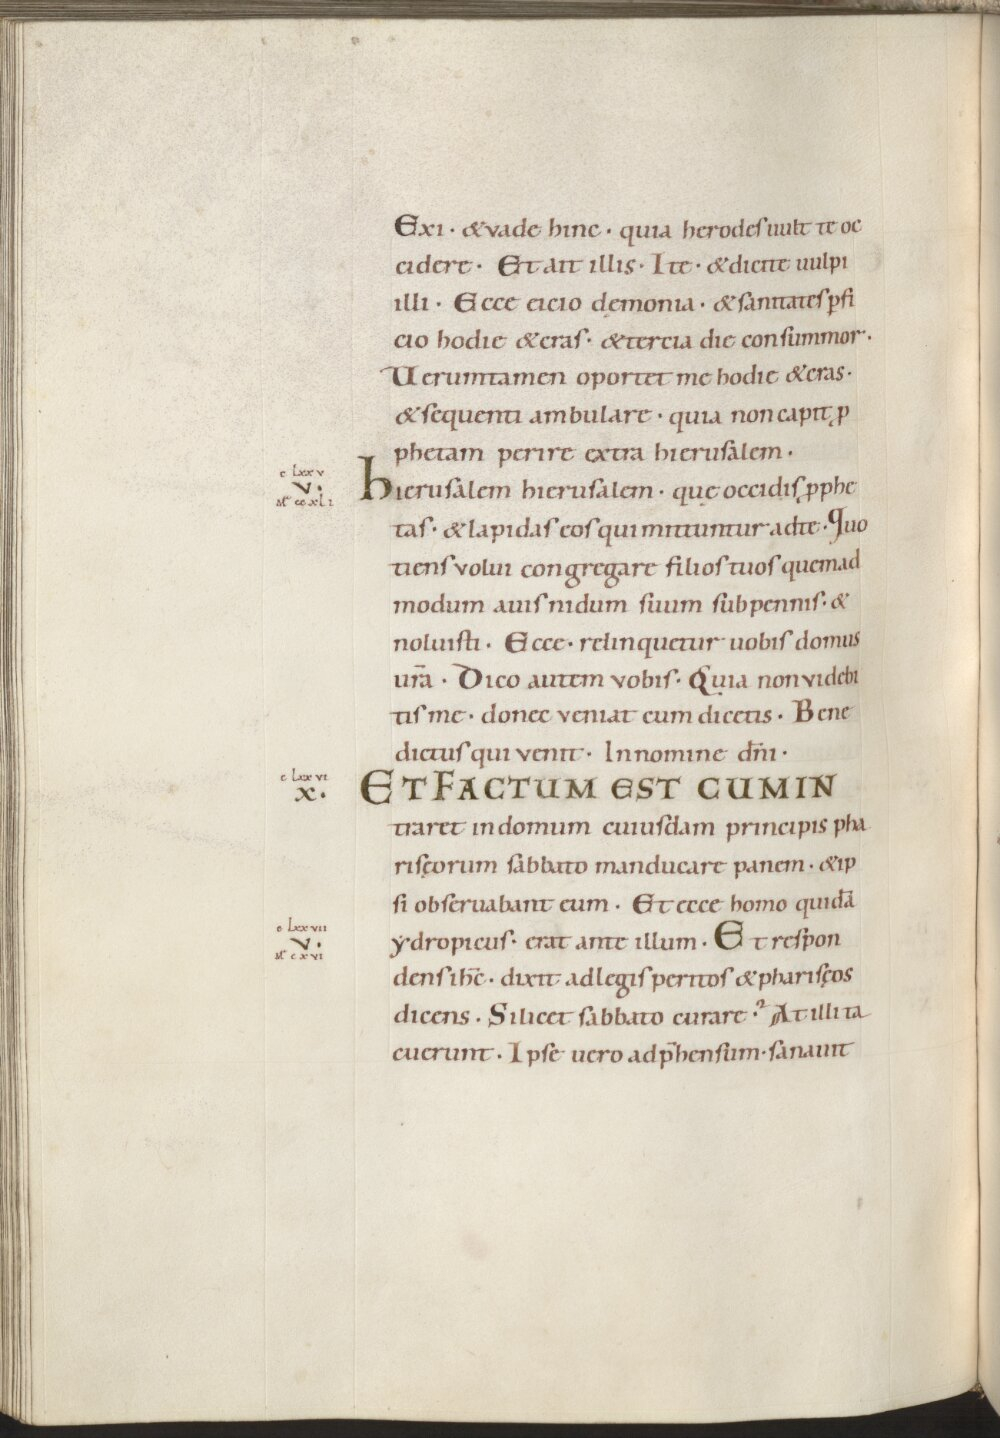 Exi · & vade hinc · quia herodes uult te oc
cidere · Et ait illis · Ite · & dicite uulpi
illi · Ecce eicio dęmonia · & sanitates ꝑfi
cio hodie & cras · & tercia die consummor ·
Uerumtamen oportet me hodie & cras ·
& sequenti ambulare · quia non capit ꝓ
phetam perire extra hierusalem ·
c lxxv
v ·
Mͭ ccxli
hierusalem hierusalem · quę occidis ꝓphe
tas · & lapidas eos qui mittuntur ad te · Quo
tiens volui congregare filios tuos quemad
modum auis nidum suum sub pennis · &
noluisti · Ecce · relinquetur uobis domus
ur̄a · Dico autem vobis · Quia non videbi
tis me · donec veniat cum dicetis · Bene
dictus qui venit · In nomine dn̄i ·
c lxxvi
x ·
ET FACTUM EST CUM IN
traret in domum cuiusdam principis pha
risęorum sabbato manducare panem · & ip
si obseruabant eum · Et ecce homo quidā
c lxxvii
v ·
Mͭ cxvi
ydropicus · erat ante illum · Et respon
dens ih̄c · dixit ad legis peritos & pharisęos
dicens · Si licet sabbato curare ·? At illi ta
cuerunt · Ipse uero adp̄hensum · sanauit